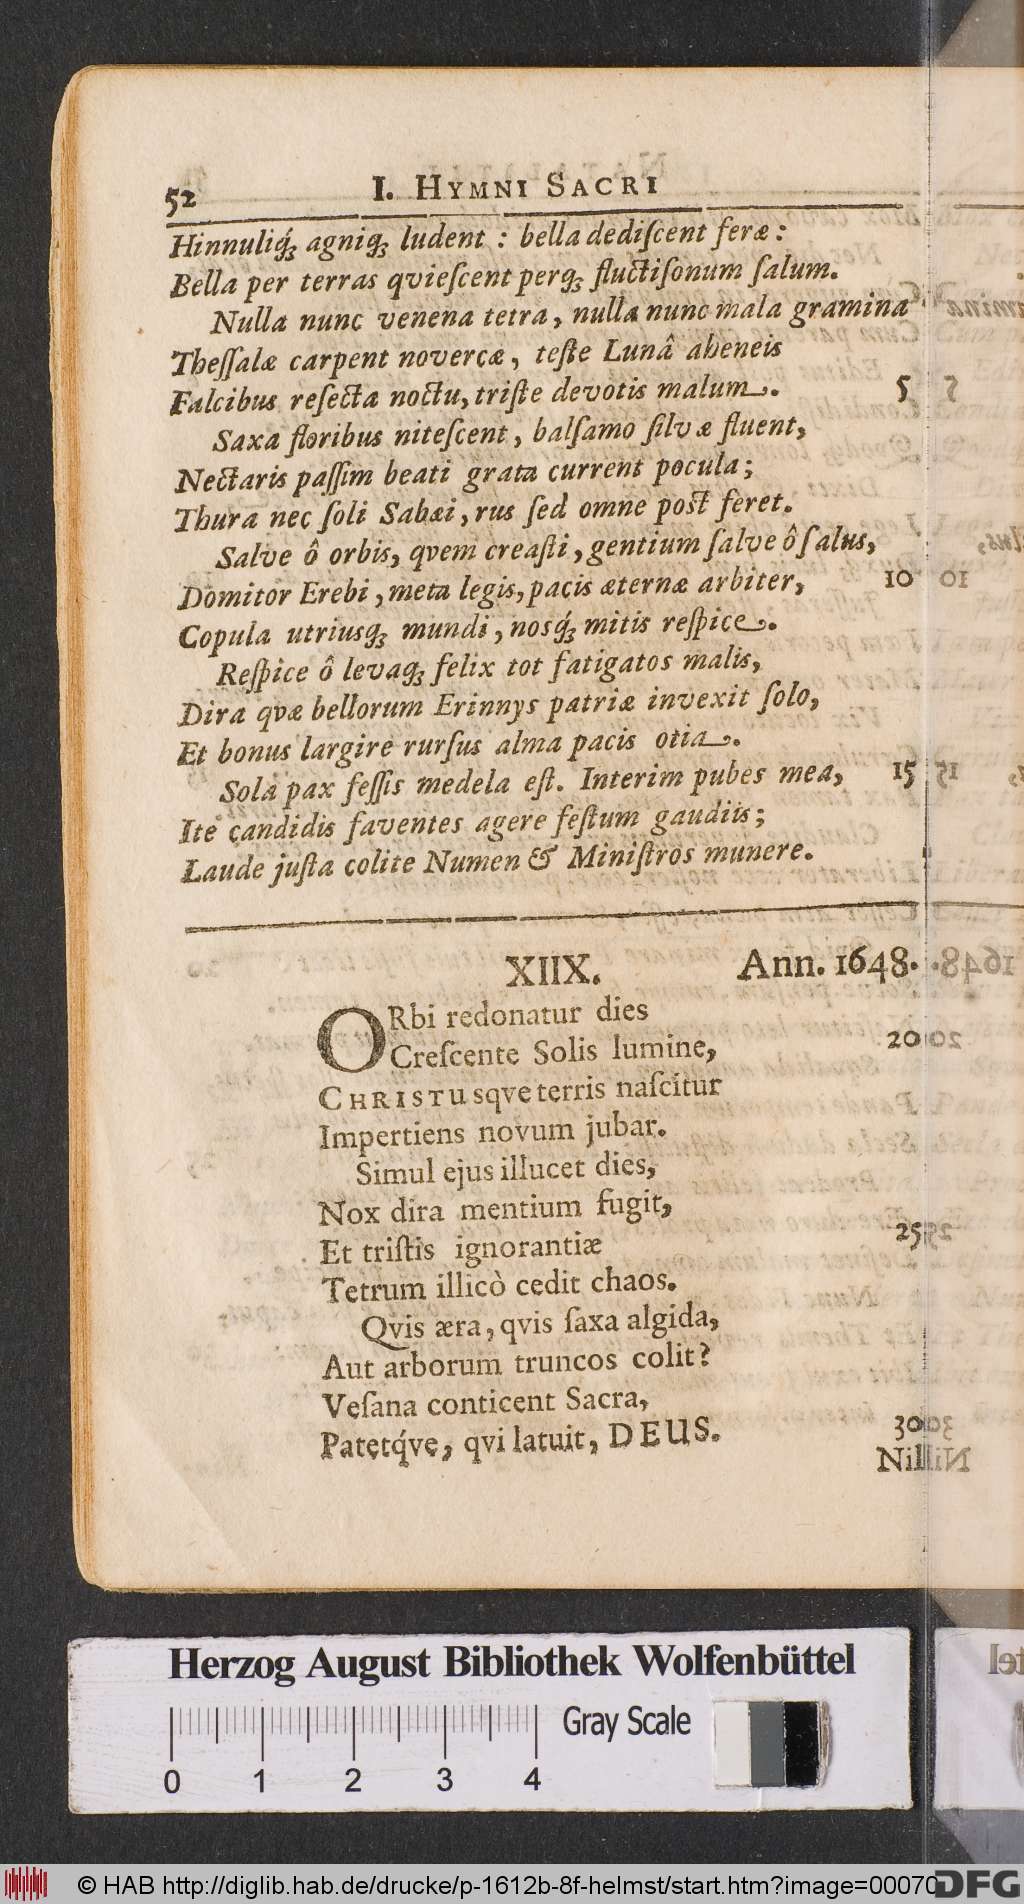 52 I. HYMNI SACRI
Hinnuliq́; agniq; ludent : bella dediſcent feræ :
Bella per terras qvieſcent perq; fluctiſonum ſalum.
Nulla nunc venena tetra, nulla nunc mala gramina
Theſſalæ carpent novercæ, teſte Lunâ aheneis
Falcibus reſecta noctu, triſte devotis malum. 5
Saxa floribus niteſcent, balſamo ſilvæ fluent,
Nectaris paſſim beati grata current pocula;
Thura nec ſoli Sabæi, rus ſed omne poſt feret.
Salve ô orbis, qvem creaſti, gentium ſalve ô ſalus,
Domitor Erebi, meta legis, pacis æternæ arbiter, 10
Copula utriusq; mundi, nosq́; mitis reſpice.
Reſpice ô levaq; felix tot fatigatos malis,
Dira qvæ bellorum Erinnys patriæ invexit ſolo,
Et bonus largire rurſus alma pacis otia.
Sola pax feſſis medela eſt. Interim pubes mea, 15
Ite candidis faventes agere feſtum gaudiis;
Laude juſta colite Numen & Miniſtros munere.
XIIX. Ann. 1648.
ORbi redonatur dies
Creſcente Solis lumine, 20
CHRISTUsqve terris naſcitur
Impertiens novum jubar.
Simul ejus illucet dies,
Nox dira mentium fugit,
Et triſtis ignorantiæ 25
Tetrum illicò cedit chaos.
Qvis æra, qvis ſaxa algida,
Aut arborum truncos colit?
Veſana conticent Sacra,
Patetq́ve, qvi latuit, DEUS. 30
Nil
Herzog August Bibliothek Wolfenbüttel
Gray Scale
0 1 2 3 4
© HAB http://diglib.hab.de/drucke/p-1612b-8f-helmst/start.htm?image=00070
DFG